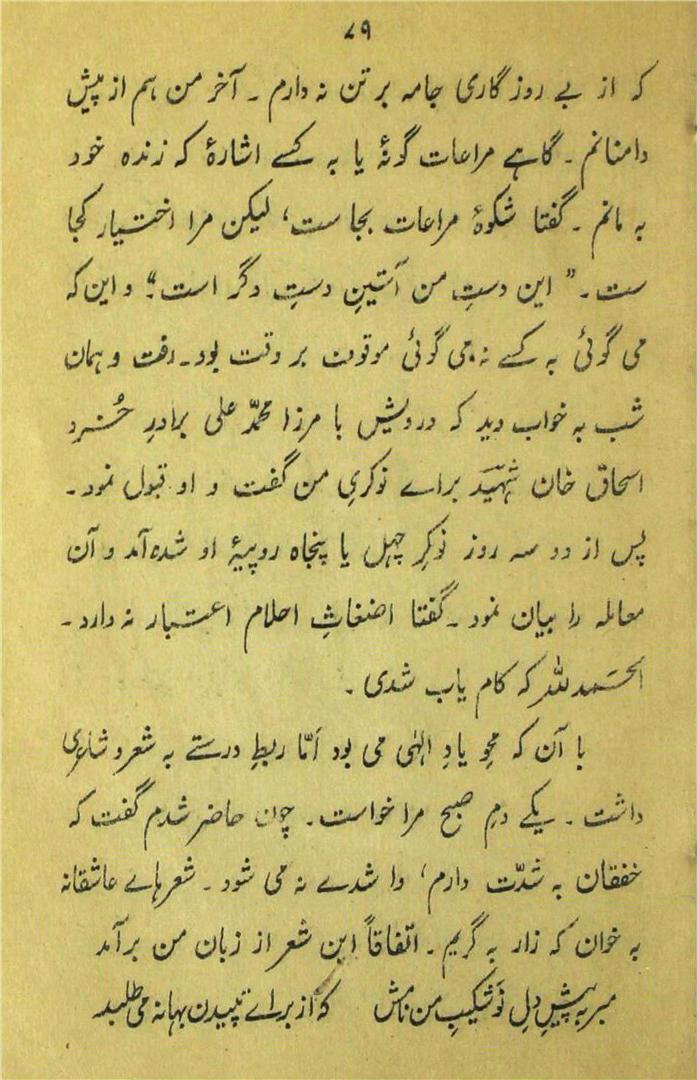 ۷۹
کہ از بے روزگاری جامہ بر تن نہ دارم ۔ آخر من ہم از پیش
دامنانم ۔ گاہے مراعات گونۂ یا بہ کسے اشارۂ کہ زندہ خود
بہ مانم ۔ گفتا شکوۂ مراعات بجا ست، لیکن مرا اختیار کجا
ست ۔ ” این دستِ من آستینِ دستِ دگر است“؛ و این کہ
می گوئی بہ کسے نہ می گوئی موقوف بر وقت بود ۔ رفت و ہمان
شب بہ خواب دید کہ درویش با مرزا محمّد علی برادرِ خُردِ
اسحاق خان شہید براے نوکریِ من گفت و او قبول نمود ۔
پس از دو سہ روز نوکرِ چہل یا پنجاہ روپیۂ او شدہ آمد و آن
معاملہ را بیان نمود ۔ گفتا اضغاثِ احلام اعتبار نہ دارد ۔
الحَمد للہ کہ کام یاب شدی ۔
با آن کہ محوِ یادِ الٰہی می بود اَمّا ربطِ درستے بہ شعر و شاعری
داشت ۔ یکے دمِ صبح مرا خواست ۔ چون حاضر شدم گفت کہ
خفقان بہ شدّت دارم، وا شدے نہ می شود ۔ شعرہاے عاشقانہ
بہ خوان کہ زار بہ گریم ۔ اتفاقاً این شعر از زبان من برآمد
مبر بہ پیشِ دلِ نَو شکیبِ من نامش کہ از براے تپیدن بہانہ می طلبد